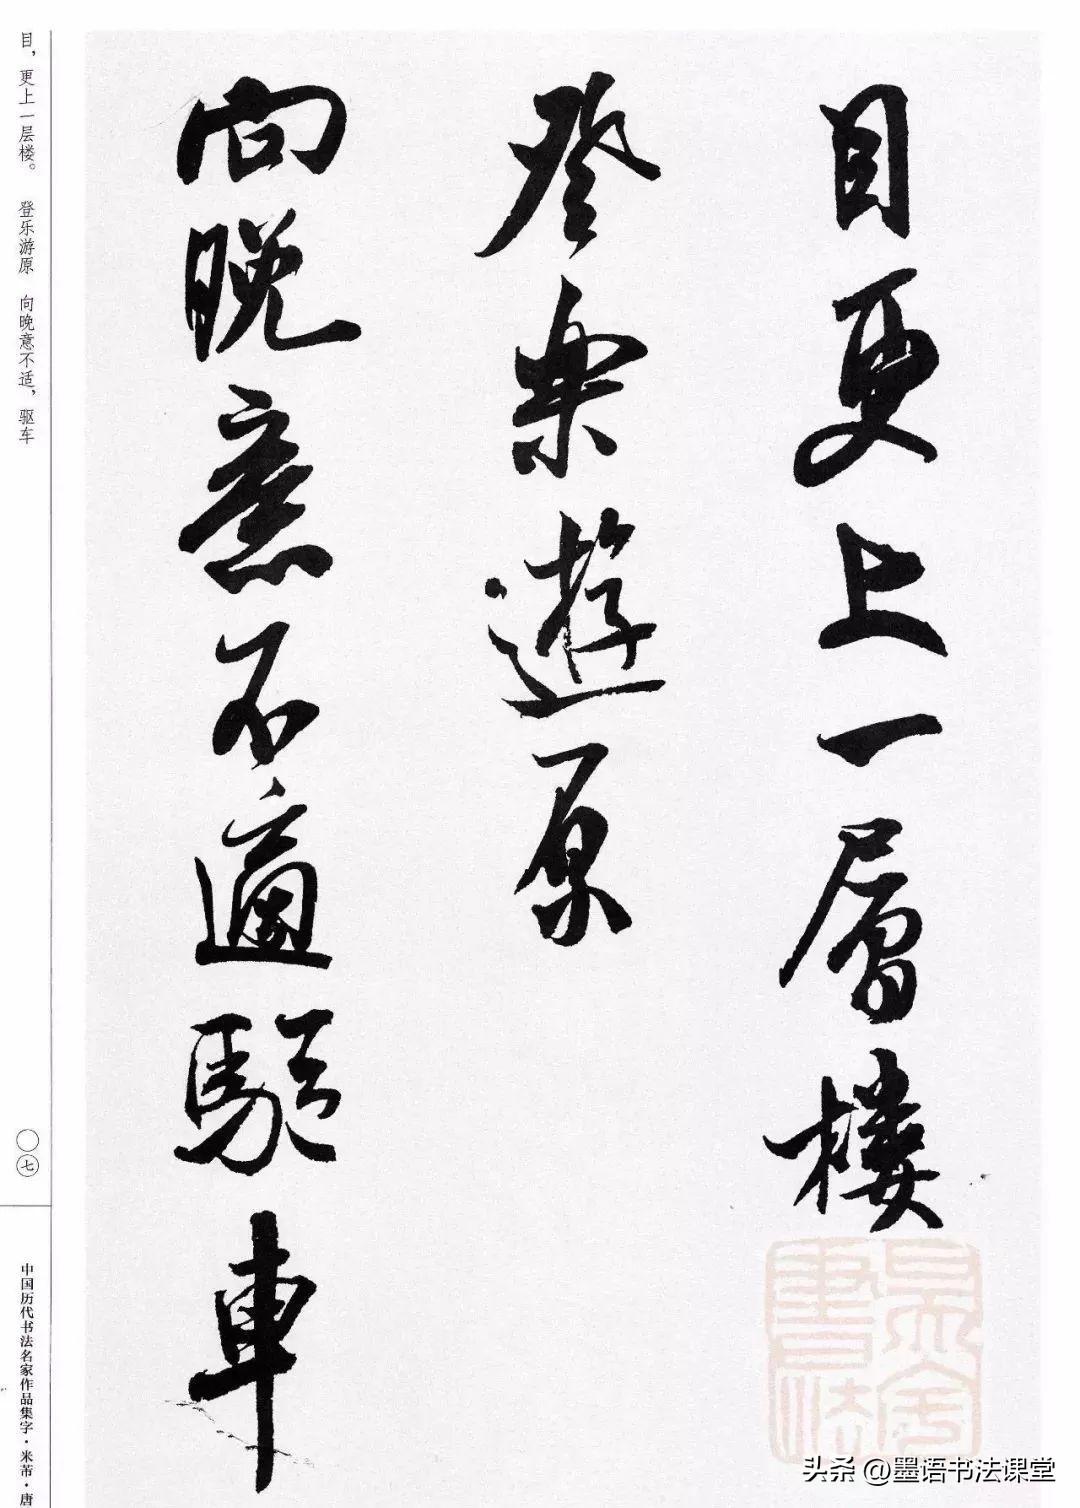 目更上一層樓
登樂遊原
向晚意不適驅車
目，更上一层楼。 登乐游原 向晚意不适，驱车
〇七
中国历代书法名家作品集字·米芾·唐
頭条 @墨语书法课堂